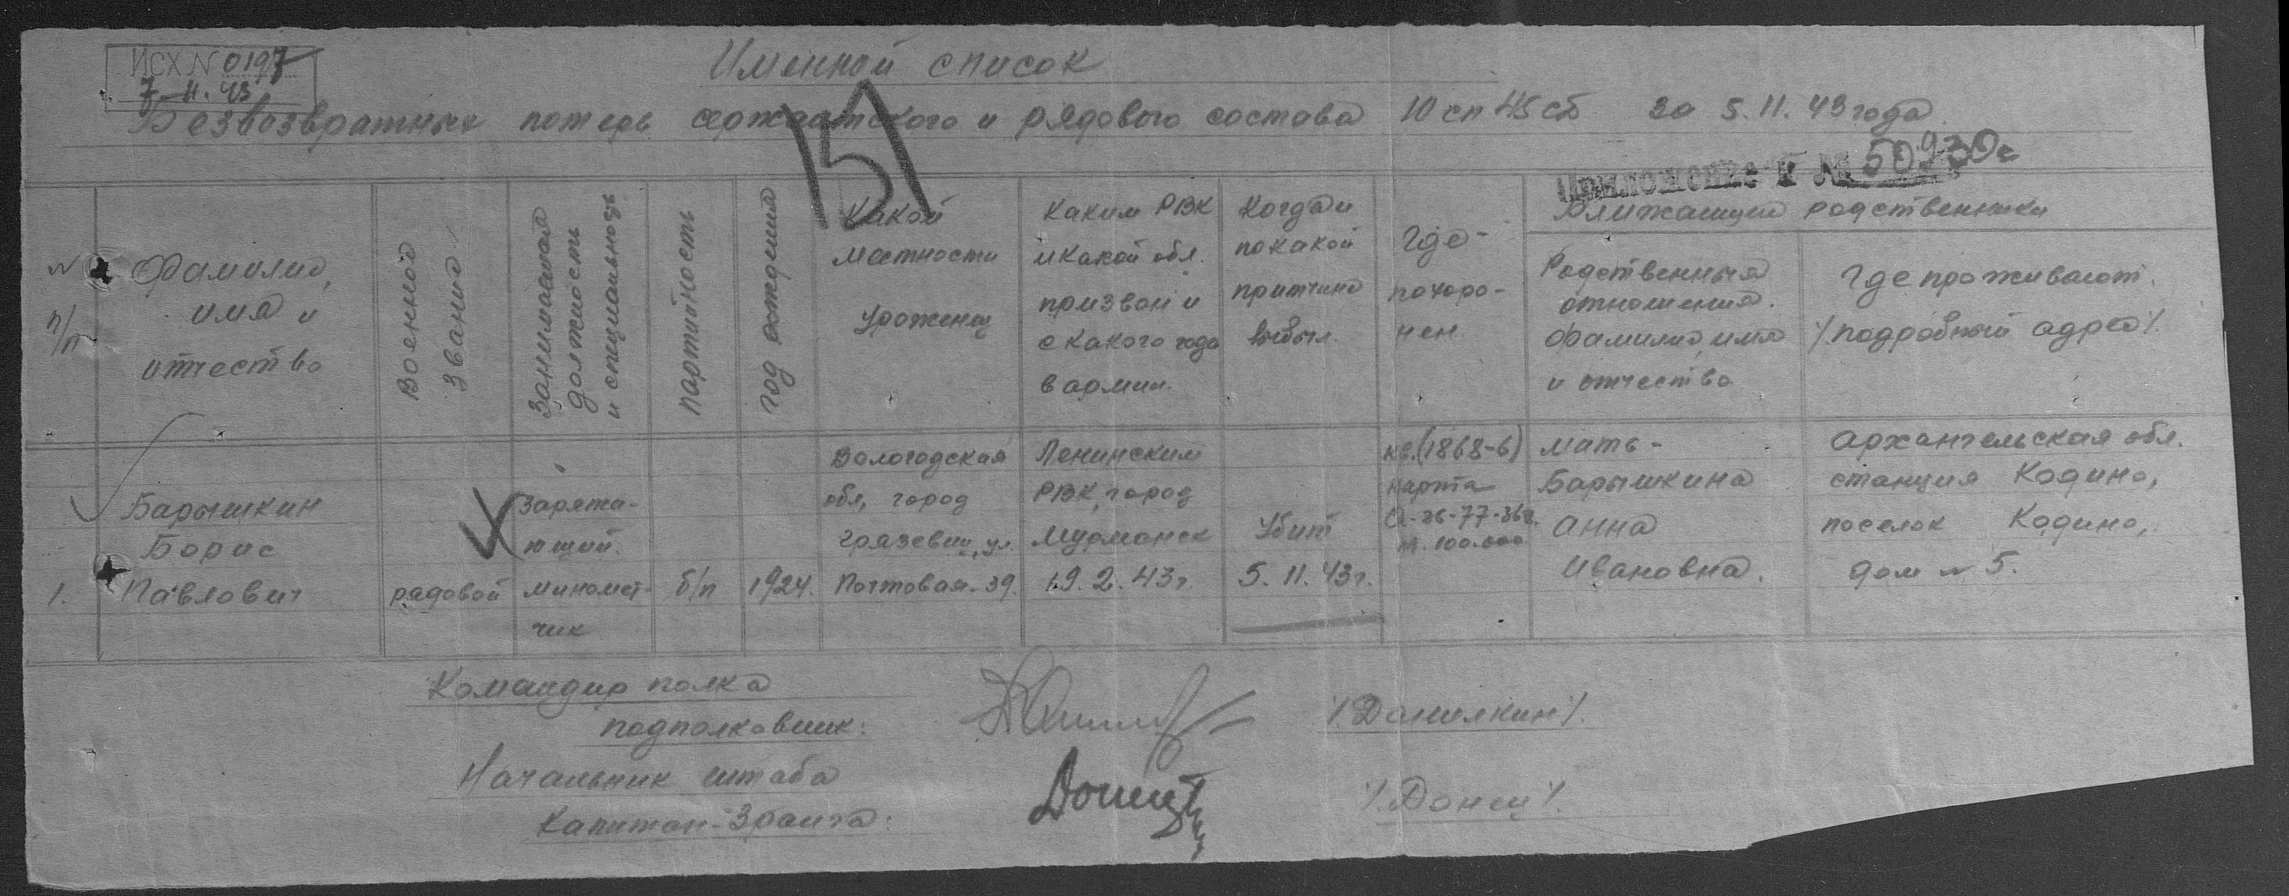 ИСХ N 0197
7-11.43
Именной список
Безвозвратных потерь сержантского и рядового состава 10 сп 45 сд за 5.11.43 года
151
Приложение к № 50930с
N п/п
Фамилия, имя и отчество
Военное звание
Занимаемая должность и специальность
Партийность
Год рождения
Какой местности уроженец
Каким РВК и какой обл. призван и с какого года в армии.
Когда и по какой причине выбыл.
Где похоро-
нен
Ближайшие родственники
Родственные отношения. Фамилия, имя и отчество
Где проживают. /подробный адрес/.
1.
Барышкин
Борис
Павлович
рядовой
Заряжа-
ющий.
миномет-
чик
б/п
1924.
Вологодская
обл, город
Грязевиц, ул.
Почтовая-39.
Ленинским
РВК, город
Мурманск
19.2.43г
Убит
5.11.43г.
кв.(1868-б)
карта
м. 100.000
Мать-
Барышкина
Анна
Ивановна.
Архангельская обл.
станция Кодино,
поселок Кодино,
дом N 5.
Командир полка
подполковник:
/Данилкин/.
Начальник штаба
Капитан
Донец
/Донец/.